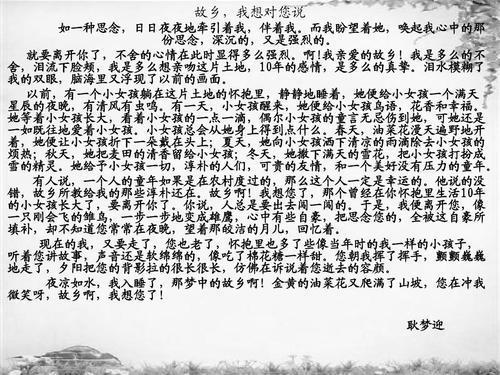 故乡，我想对您说
如一种思念，日日夜夜地牵引着我，伴着我。而我盼望着她，唤起我心中的那
份思念，深沉的，又是强烈的。
就要离开你了，不舍的心情在此时显得多么强烈。啊！我亲爱的故乡！我是多么的不
舍，泪流下脸颊，我是多么想亲吻这片土地，10年的感情，是多么的真挚。泪水模糊了
我的双眼，脑海里又浮现了以前的画面。
以前，有一个小女孩躺在这片土地的怀抱里，静静地睡着，她便给小女孩一个满天
星辰的夜晚，有清风有虫鸣。有一天，小女孩醒来，她便给小女孩鸟语，花香和幸福。
她等着小女孩长大，看着小女孩的一点一滴，偶尔小女孩的童言无忌伤到她，可她还是
一如既往地爱着小女孩。小女孩总会从她身上得到点什么。春天，油菜花漫天遍野地开
着，她便让小女孩折下一朵戴在头上；夏天，她向小女孩洒下清凉的雨滴除去小女孩的
烦热；秋天，她把麦田的清香留给小女孩；冬天，她撒下满天的雪花，把小女孩打扮成
雪的精灵。她给予小女孩一切，淳朴的人们，可贵的友情，和一个美好没有压力的童年。
有人说，一个人的童年如果是在农村度过的，那么这个人一定是幸运的。他说的没
错，故乡所教给我的那些淳朴还在。故乡啊！我想您了，那个曾经在你怀抱里生活10年
的小女孩长大了，要离开你了。你说，人总是要出去闯一闯的。于是，我便离开您，像
一只刚会飞的雏鸟，一步一步地变成雄鹰，心中有些自豪。把思念您的，全被这自豪所
填补，却不知道您常常在夜晚，望着那皎洁的月儿，回忆着。
现在的我，又要走了，您也老了，怀抱里也多了些像当年时的我一样的小孩子，
听着您讲故事，声音还是软绵绵的，像吃了棉花糖一样甜。您朝我挥了挥手，颤颤巍巍
地走了，夕阳把您的背影拉的很长很长，仿佛在诉说着您逝去的容颜。
夜凉如水，我入睡了，那梦中的故乡啊！金黄的油菜花又爬满了山坡，您在冲我
微笑呀，故乡啊，我想您了！
耿梦迎